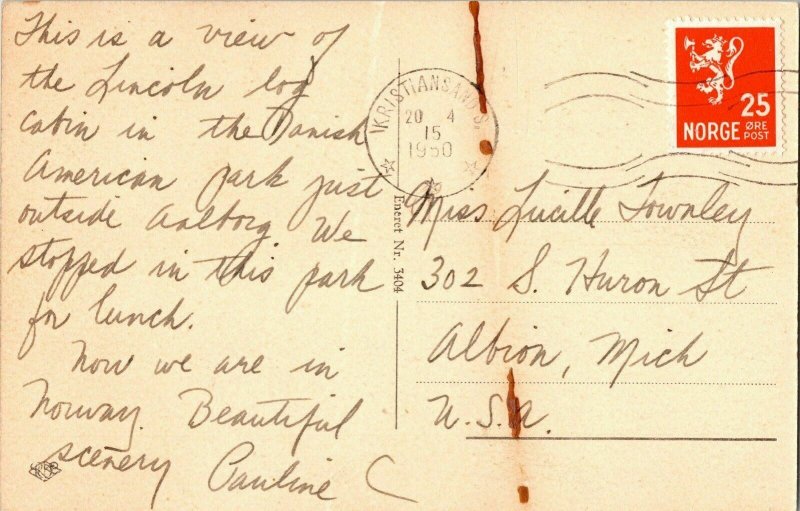 This is a view of
the Lincoln log
cabin in the Danish
American park just
outside Aalborg We
stopped in this park
for lunch.
Now we are in
Norway. Beautiful
scenery Pauline C
KRISTIANSAND S.
20 4
15
1950
Eneret Nr. 3404
25
NORGE ØRE
POST
Miss Lucille Townley
302 S. Huron St
Albion, Mich
U.S.A.